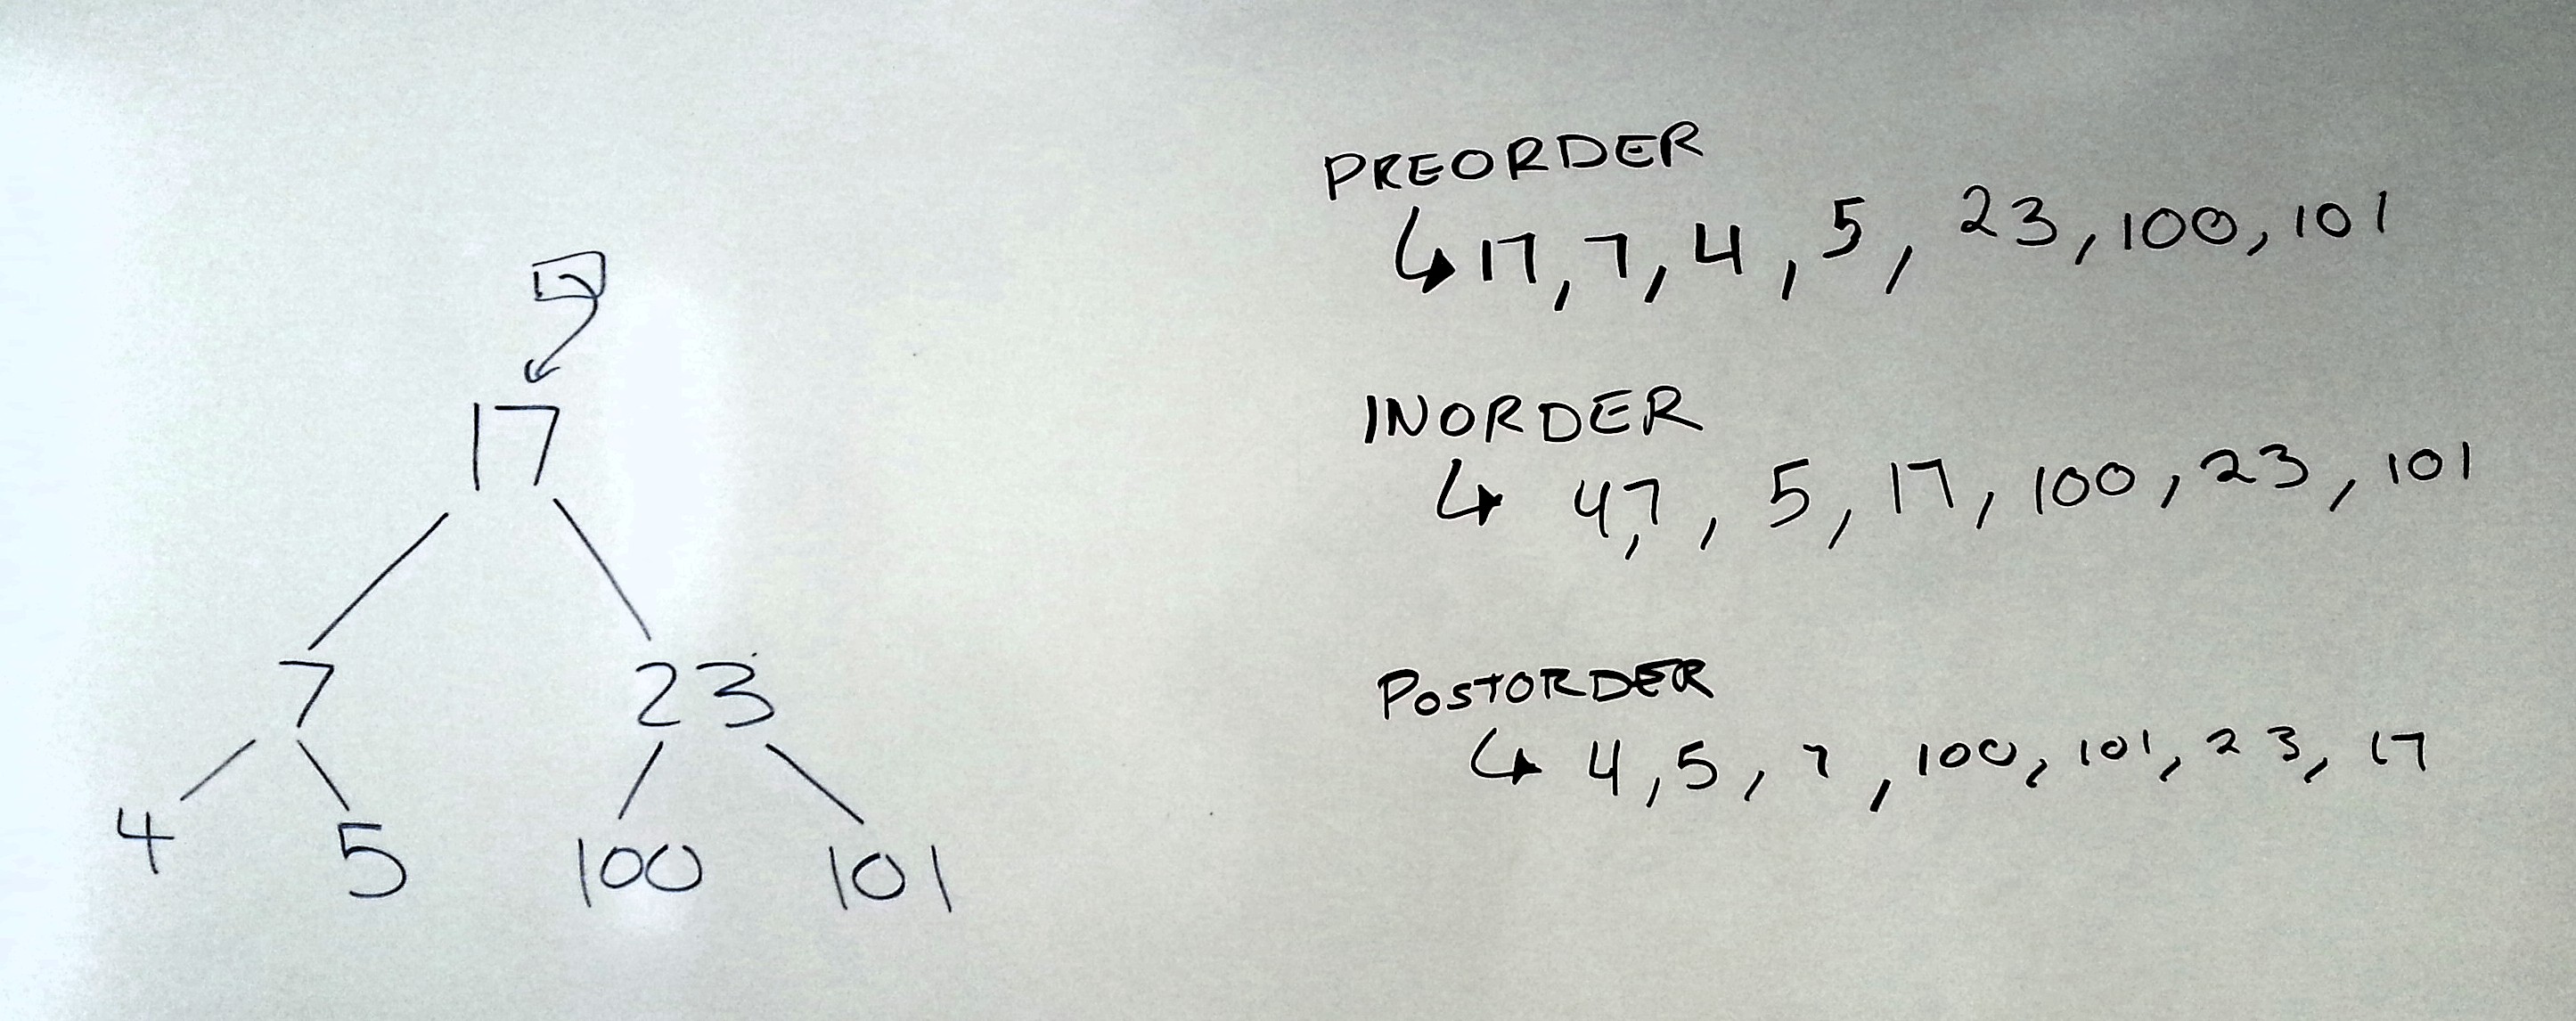 PREORDER
17, 7, 4, 5, 23, 100, 101
INORDER
4,7, 5, 17, 100, 23, 101
POSTORDER
4, 5, 7, 100, 101, 23, 17
17
7 23
4 5 100 101